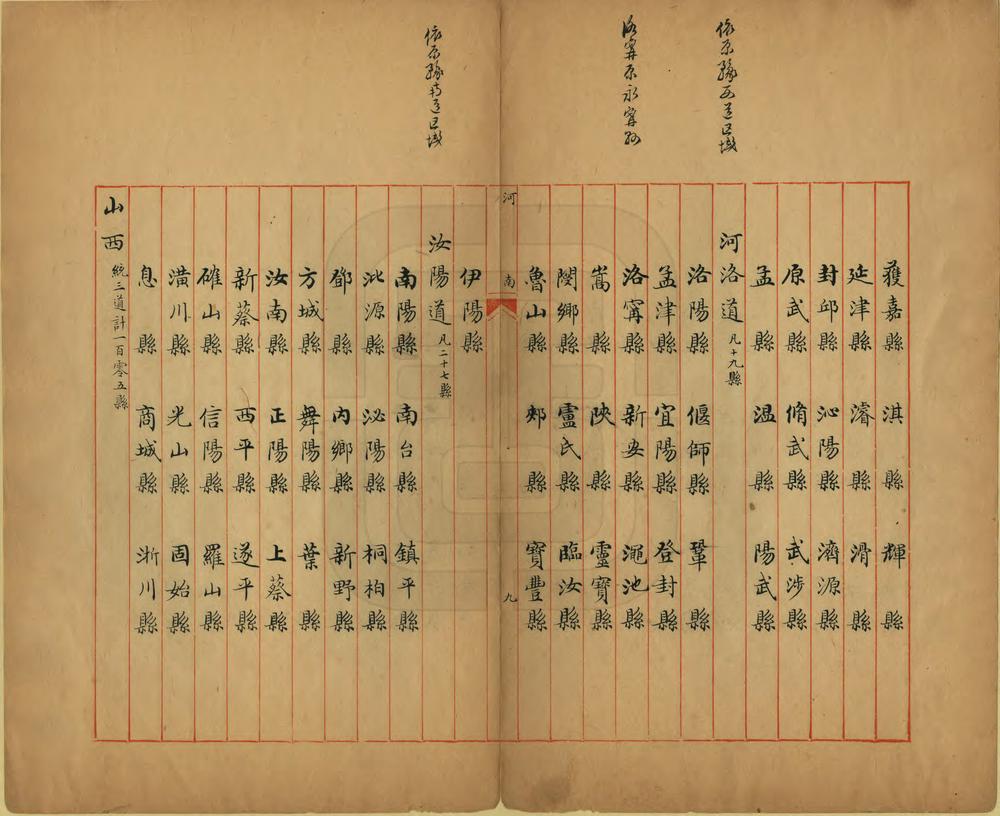 依原豫西道区域
洛寗原永寗縣
依原豫南道区域
獲嘉縣 淇縣 輝縣
延津縣 濬縣 滑縣
封邱縣 沁陽縣 濟源縣
原武縣 脩武縣 武涉縣
孟縣 温縣 陽武縣
河洛道 凡十九縣
洛陽縣 偃師縣 鞏縣
孟津縣 宜陽縣 登封縣
洛寗縣 新安縣 澠池縣
嵩縣 陜縣 靈寶縣
閿鄉縣 盧氏縣 臨汝縣
魯山縣 郟縣 寶豐縣
河南 九
伊陽縣
汝陽道 凡二十七縣
南陽縣 南台縣 鎮平縣
沘源縣 泌陽縣 桐柏縣
鄧縣 內鄉縣 新野縣
方城縣 舞陽縣 葉縣
汝南縣 正陽縣 上蔡縣
新蔡縣 西平縣 遂平縣
確山縣 信陽縣 羅山縣
潢川縣 光山縣 固始縣
息縣 商城縣 淅川縣
山西 統三道計一百零五縣